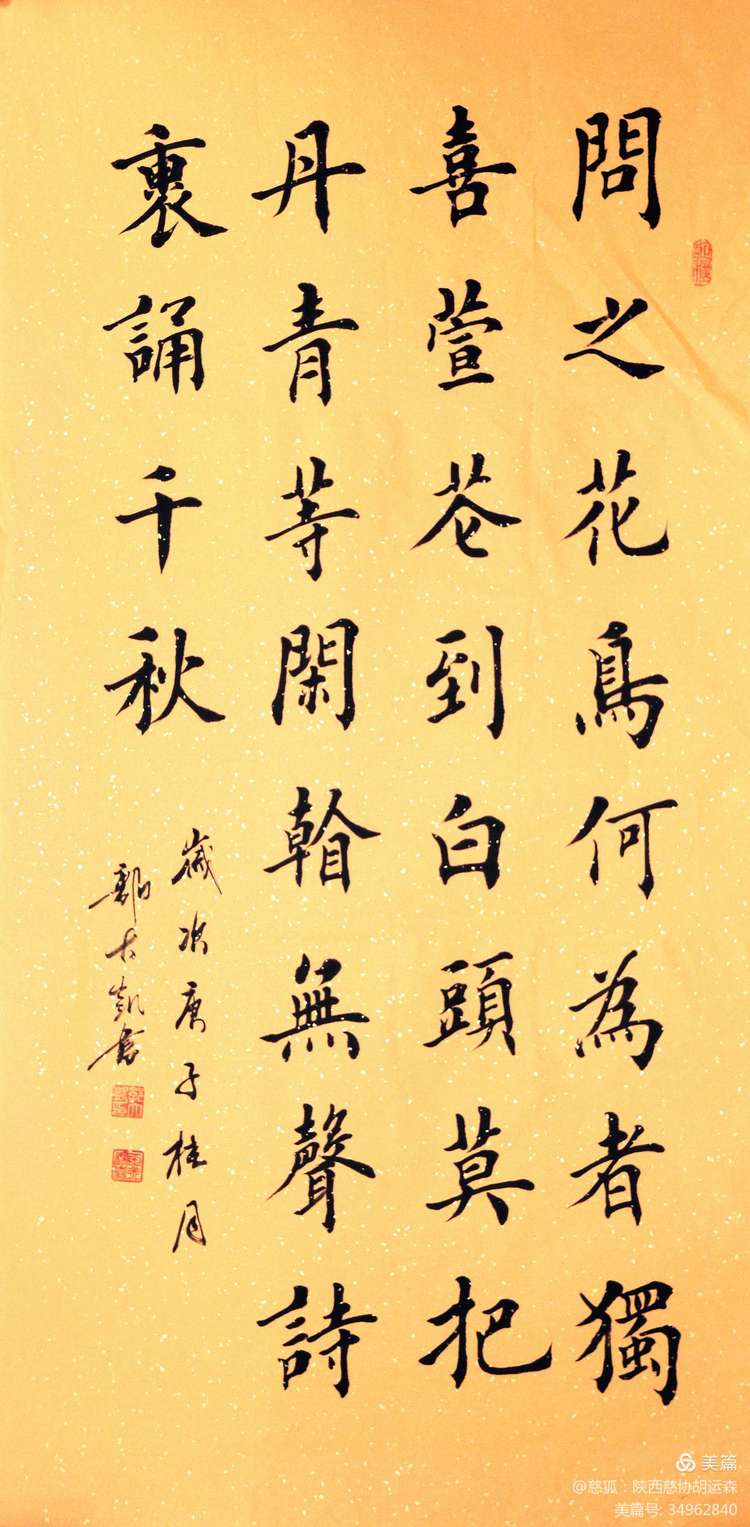 問之花鳥何為者獨
喜萱花到白頭莫把
丹青等閑看無聲詩
裏誦千秋
歲次庚子桂月
郭大凱書
美篇
@慈狐:陕西慈协胡运森
美篇号: 34962840